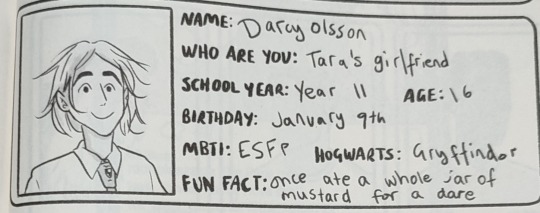 NAME: Darcy Olsson
WHO ARE YOU: Tara's girlfriend
SCHOOL YEAR: Year 11 AGE: 16
BIRTHDAY: January 9th
MBTI: ESFP HOGWARTS: Gryffindor
FUN FACT: once ate a whole jar of
mustard for a dare